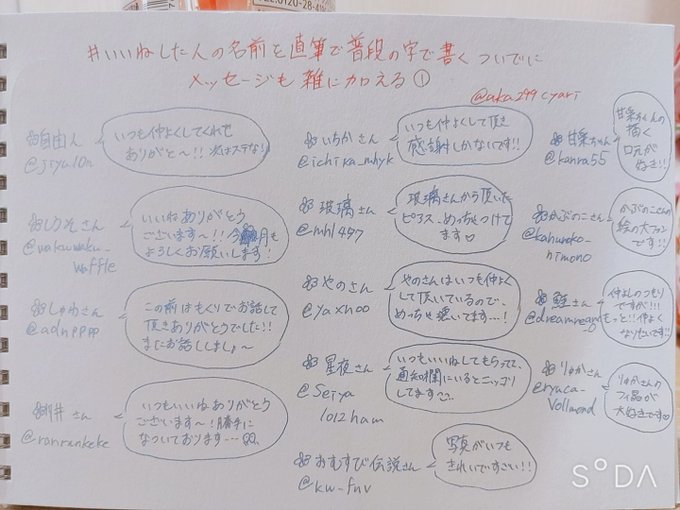 #いいねした人の名前を直筆で普段の字で書くついでに
メッセージも雑に加える①
@aka299cyari
自由人
@jiyu10n
いつも仲よくしてくれて
ありがと〜!! 次はステな!!
しうそさん
@wakuwaku_
waffle
いいねありがとう
ございます〜!! 今月も
よろしくお願いします!
しゅわさん
@adnpppp
この前はもぐりでお話して
頂きありがとうでした!!
またお話ししましょ〜
井 さん
@ranrunkeke
いつもいいねありがとう
ございます〜! 勝手に
なついております…
いちかさん
@ichika_mhyk
いつも仲よくして頂き
感謝しかないです!!
玻璃さん
@mhl497
玻璃さんから頂いた
ピアス、めっちゃつけて
ます♡
やのさん
@yaxhoo
やのさんはいつも仲よく
して頂いているので、
めちゃ懐いてます…!
星夜さん
@Seiya
1012ham
いつもいいねしてもらってて、
通知欄にいるとニッコリ
してます
おむすび伝説さん
@kw_fuv
写真がいつも
きれいですごい!!
甘楽ちゃん
@kanra55
甘楽くんの
描く
口元が
ぬき!!
かぶのこさん
@kabunoko_
nimono
かぶのこさんの
絵の大ファン
です!!
さん
仲よしのつもり
ですが!!!
もっと!!仲よく
なりたいです!!
りゅかさん
@ryuca_
Vollmond
りゅかさんの
作品が
大好きです♡
SODA